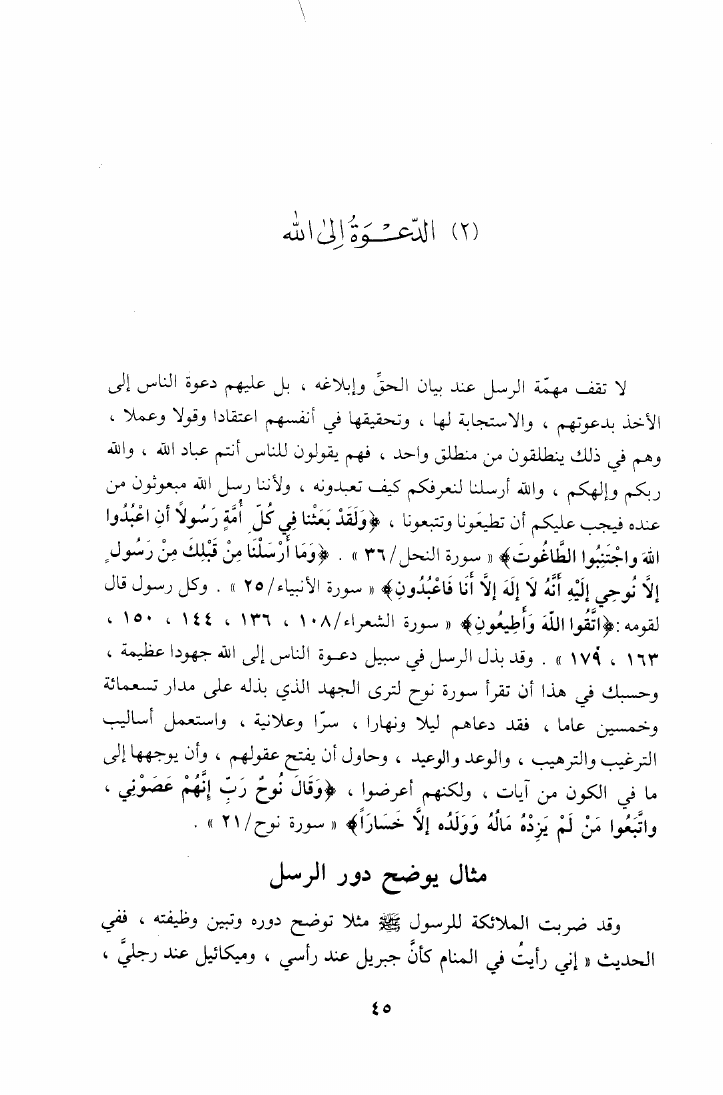 (٢) الدّعْوَةُ إِلىٰ اللّٰه
لا تقف مهمّة الرسل عند بيان الحقِّ وإبلاغه ، بل عليهم دعوة الناس إلى
الأخذ بدعوتهم ، والاستجابة لها ، وتحقيقها في أنفسهم اعتقادا وقولا وعملا ،
وهم في ذلك ينطلقون من منطلق واحد ، فهم يقولون للناس أنتم عباد الله ، والله
ربكم وإلهكم ، والله أرسلنا لنعرفكم كيف تعبدونه ، ولأننا رسل الله مبعوثون من
عنده فيجب عليكم أن تطيعونا وتتبعونا ، ﴿وَلَقَدْ بَعَثْنا فِي كُلِّ أُمَّةٍ رَسُولاً أنِ اعْبُدُوا
اللهَ واجْتَنِبُوا الطَّاغُوتَ﴾ « سورة النحل/٣٦ » . ﴿وَمَا أَرْسَلْنَا مِنْ قَبْلِكَ مِنْ رَسُولٍ
إلَّا نُوحِي إلَيْهِ أَنَّهُ لَا إلَهَ إلَّا أنَا فَاعْبُدُونِ﴾ « سورة الأنبياء/٢٥ » . وكل رسول قال
لقومه :﴿اتَّقُوا اللَّهَ وَأَطِيعُونِ﴾ « سورة الشعراء/١٠٨ ، ١٣٦ ، ١٤٤ ، ١٥٠ ،
١٦٣ ، ١٧٩ » . وقد بذل الرسل في سبيل دعوة الناس إلى الله جهودا عظيمة ،
وحسبك في هذا أن تقرأ سورة نوح لترى الجهد الذي بذله على مدار تسعمائة
وخمسين عاما ، فقد دعاهم ليلا ونهارا ، سرّا وعلانية ، واستعمل أساليب
الترغيب والترهيب ، والوعد والوعيد ، وحاول أن يفتح عقولهم ، وأن يوجهها إلى
ما في الكون من آيات ، ولكنهم أعرضوا ، ﴿وَقَالَ نُوحٌ رَبِّ إنَّهُمْ عَصَوْنِي ،
واتَّبَعُوا مَنْ لَمْ يَزِدْهُ مَالُهُ وَوَلَدُه إلَّا خَسَاراً﴾ « سورة نوح/٢١ » .
مثال يوضح دور الرسل
وقد ضربت الملائكة للرسول ﷺ مثلا توضح دوره وتبين وظيفته ، ففي
الحديث « إني رأيتُ في المنام كأنَّ جبريل عند رأسي ، وميكائيل عند رجليَّ ،
٤٥